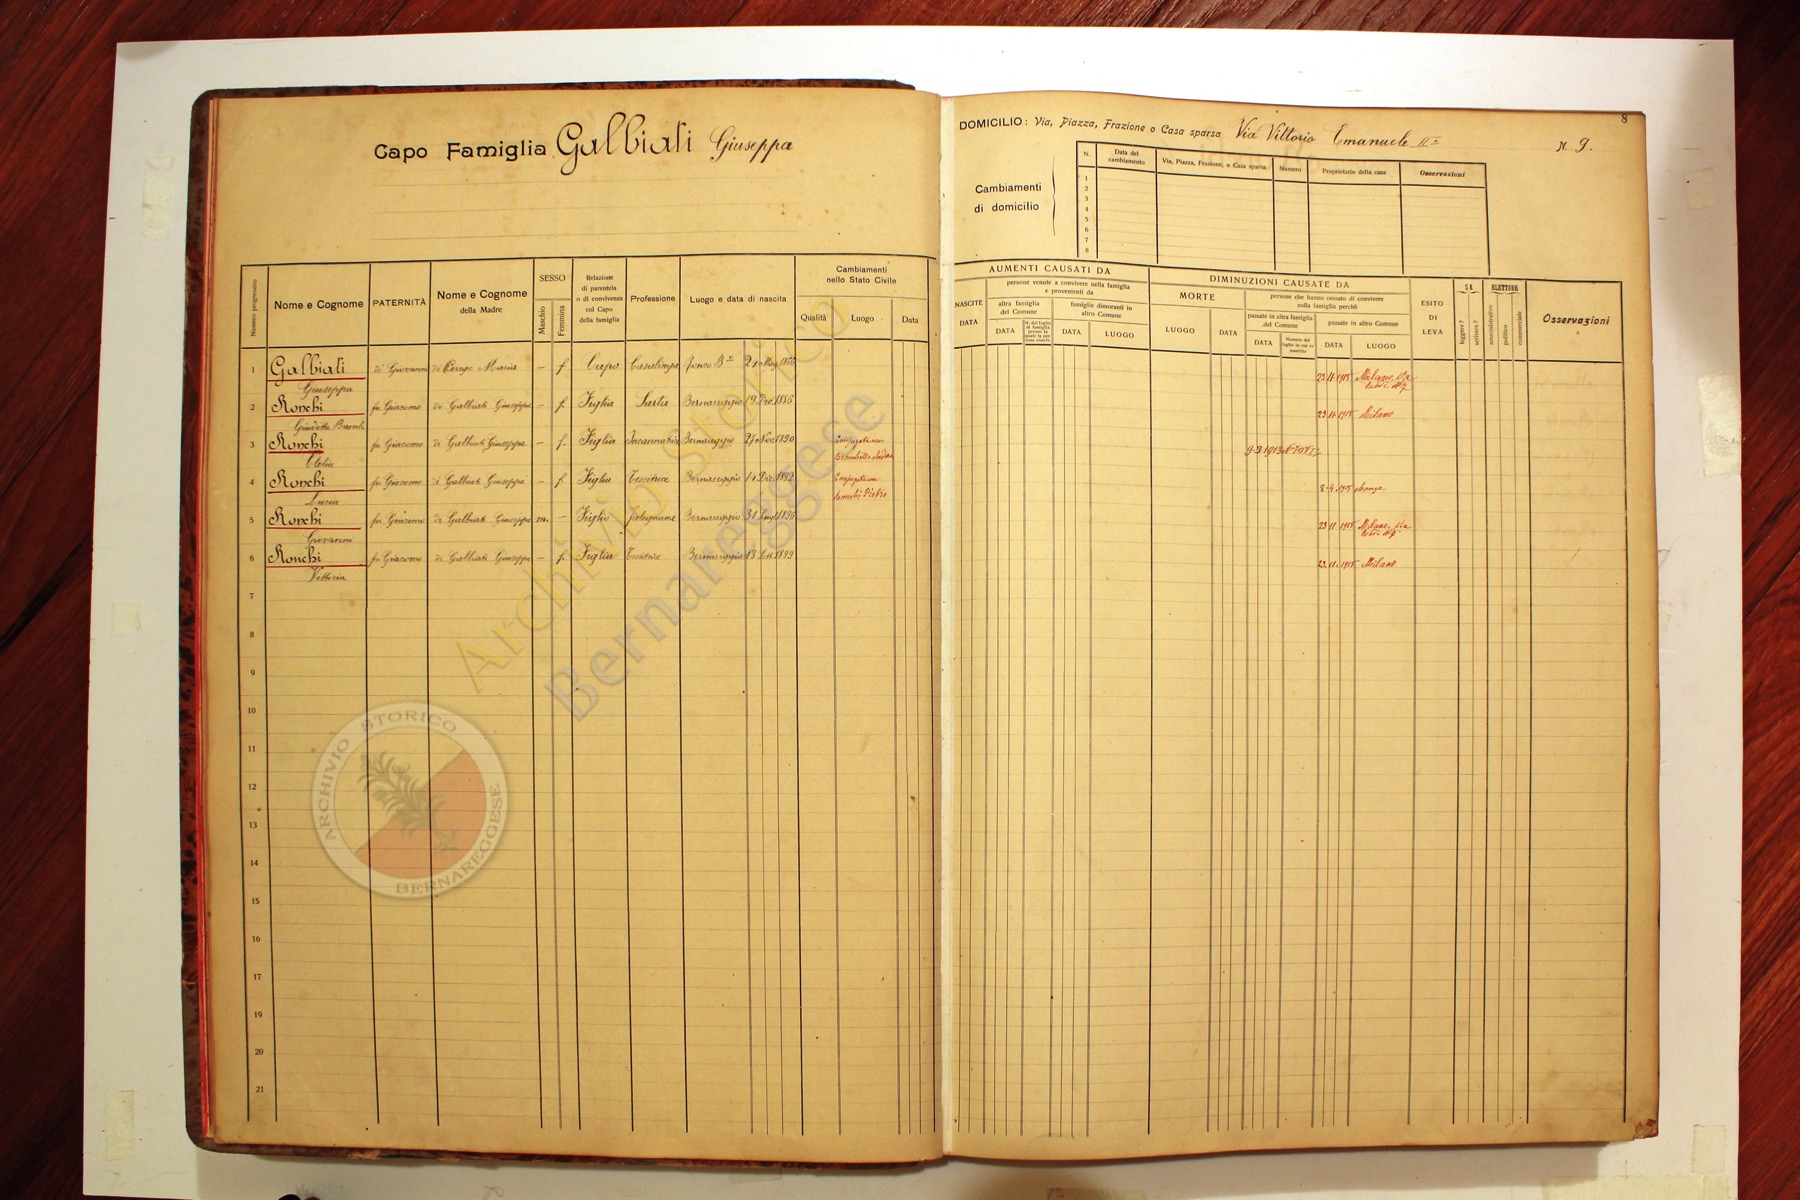 8
Capo Famiglia Galbiati Giuseppa
DOMICILIO: Via, Piazza, Frazione o Casa sparsa Via Vittorio Emanuele II° N. 9.
Cambiamenti
di domicilio
N. Data del cambiamento Via, Piazza, Frazione, o Casa sparsa Numero Proprietario della casa Osservazioni
1
2
3
4
5
6
7
8
Numero progressivo
Nome e Cognome
PATERNITÀ
Nome e Cognome
della Madre
SESSO
Maschio
Femmina
Relazione
di parentela
o di convivenza
col Capo
della famiglia
Professione
Luogo e data di nascita
Cambiamenti
nello Stato Civile
Qualità
Luogo
Data
AUMENTI CAUSATI DA
NASCITE
DATA
persone venute a convivere nella famiglia
e provenienti da
altra famiglia
del Comune
DATA
famiglie dimoranti in
altro Comune
DATA
LUOGO
DIMINUZIONI CAUSATE DA
MORTE
LUOGO
DATA
persone che hanno cessato di convivere
colla famiglia perchè
passate in altra famiglia
del Comune
DATA
passate in altro Comune
DATA
LUOGO
ESITO
DI
LEVA
SA
leggere?
scrivere?
ELETTORE
amministrativo
politico
commerciale
Osservazioni
1 Galbiati di Giovanni di Maria – f Capo Casalinga Ronco B 1866 23-11-1915 Milano, Via
Giuseppa
2 Ronchi fu Giacomo di Galbiati Giuseppa – f. Figlia Sarta Bernareggio 19 Dic. 1886 23-11-1915 Milano
Giuditta
3 Ronchi fu Giacomo di Galbiati Giuseppa – f. Figlia Incannatrice Bernareggio 27 Nov. 1890 Conjugata con 9-3-1913
Clelia Brambilla
4 Ronchi fu Giacomo di Galbiati Giuseppa – f. Figlia Tessitrice Bernareggio 14 Dic. 1892 Conjugata con 8-4-1915 Monza
Lucia Ronchi Pietro
5 Ronchi fu Giacomo di Galbiati Giuseppa m. – Figlio falegname Bernareggio 31 1896 23-11-1915 Milano, Via
Giovanni
6 Ronchi fu Giacomo di Galbiati Giuseppa – f. Figlia Tessitrice Bernareggio 13 Sett. 1899 23-11-1915 Milano
Vittoria
7
8
9
10
11
12
13
14
15
16
17
18
19
20
21
Archivio Storico
Bernareggese
ARCHIVIO STORICO
BERNAREGGESE